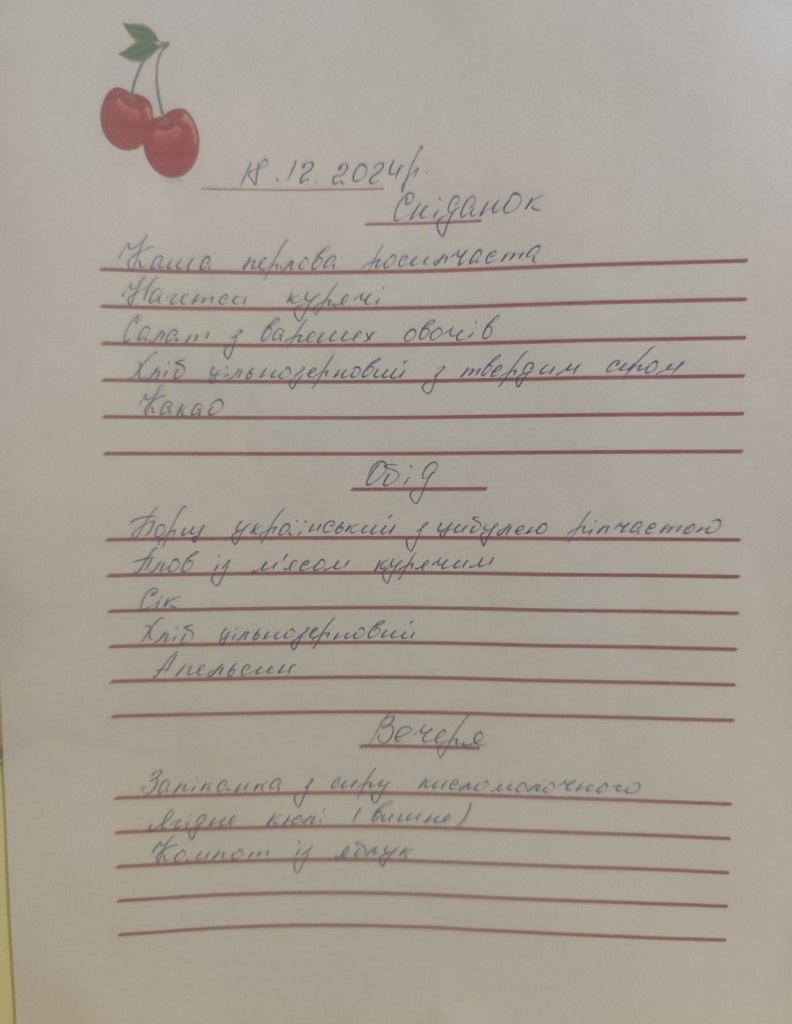 18.12.2024р.
Сніданок
Каша перлова росипчаста
Нагетси курячі
Салат з варених овочів
Хліб цільнозерновий з твердим сиром
Какао
Обід
Борщ український з цибулею ріпчастою
Плов із м'ясом курячим
Сік
Хліб цільнозерновий
Апельсин
Вечеря
Запіканка з сиру кисломолочного
Ягідне кюлі (вишне)
Компот із яблук